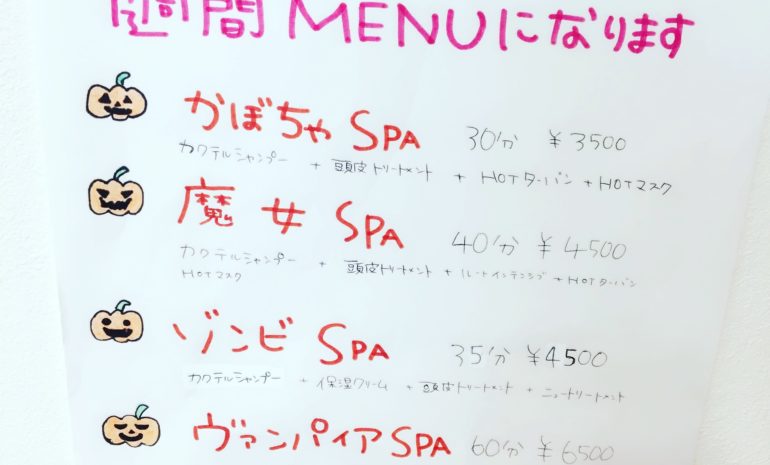 週間MENUになります
かぼちゃSPA 30分 ¥3500
カクテルシャンプー + 頭皮トリートメント + HOTターバン + HOTマスク
魔女SPA 40分 ¥4500
カクテルシャンプー + 頭皮トリートメント + ルートインテンシブ + HOTターバン
HOTマスク
ゾンビSPA 35分 ¥4500
カクテルシャンプー + 保湿クリーム + 頭皮トリートメント + ニュートリートメント
ヴァンパイアSPA 60分 ¥6500